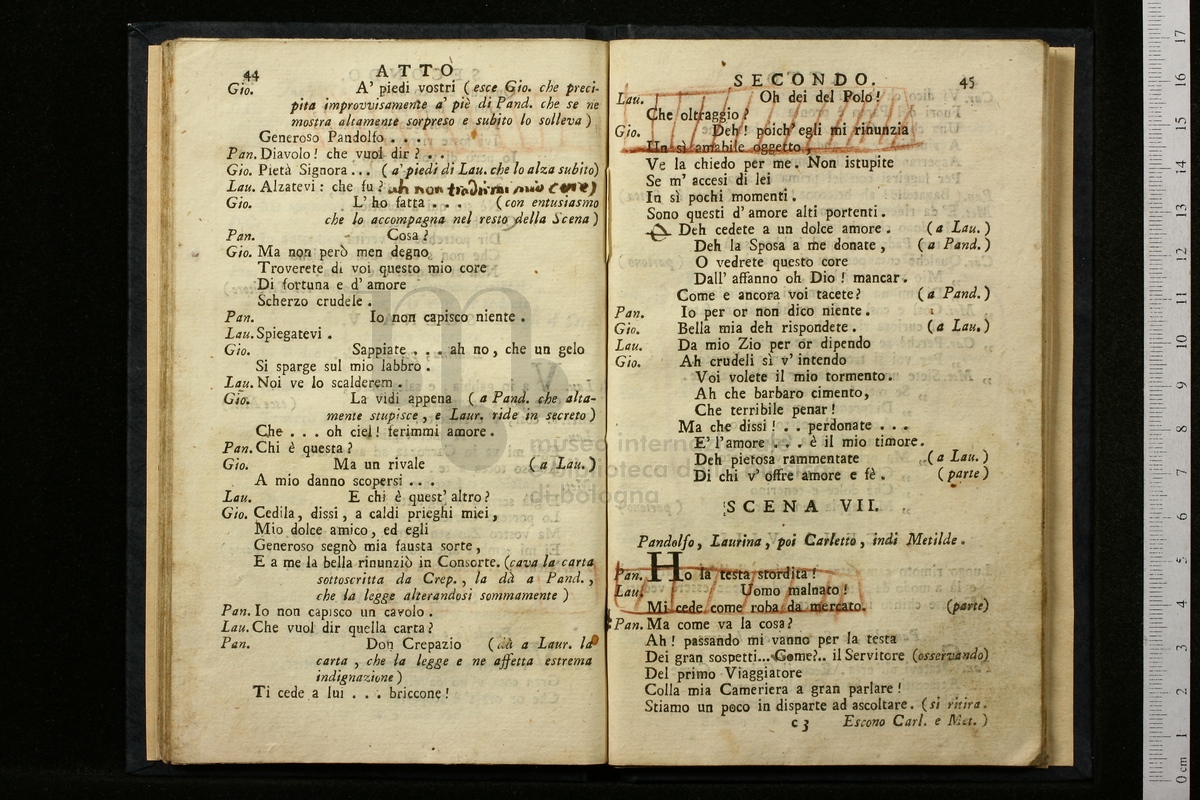 44
ATTO
Gio. A' piedi vostri ( esce Gio. che preci-
pita improvvisamente a' piè di Pand. che se ne
mostra altamente sorpreso e subito lo solleva )
Generoso Pandolfo . . .
Pan. Diavolo ! che vuol dir ? . . .
Gio. Pietà Signora . . . ( a' piedi di Lau. che lo alza subito)
Lau. Alzatevi : che fu ? ah non tradirmi mio core)
Gio. L' ho fatta . . . (con entusiasmo
che lo accompagna nel resto della Scena )
Pan. Cosa ?
Gio. Ma non però men degno
Troverete di voi questo mio core
Di fortuna e d' amore
Scherzo crudele .
Pan. Io non capisco niente .
Lau. Spiegatevi .
Gio. Sappiate . . . ah no , che un gelo
Si sparge sul mio labbro .
Lau. Noi ve lo scalderem .
Gio. La vidi appena ( a Pand. che alta-
mente stupisce , e Laur. ride in secreto )
Che . . . oh ciel ! ferimmi amore .
Pan. Chi è questa ?
Gio. Ma un rivale ( a Lau. )
A mio danno scopersi . . .
Lau. E chi è quest' altro ?
Gio. Cedila , dissi , a caldi prieghi miei ,
Mio dolce amico , ed egli
Generoso segnò mia fausta sorte ,
E a me la bella rinunziò in Consorte. (cava la carta
sottoscritta da Crep. , la dà a Pand. ,
che la legge alterandosi sommamente )
Pan. Io non capisco un cavolo .
Lau. Che vuol dir quella carta ?
Pan. Don Crepazio (dà a Laur. la
carta , che la legge e ne affetta estrema
indignazione )
Ti cede a lui . . . briccone !
SECONDO.
45
Lau. Oh dei del Polo !
Che oltraggio ?
Gio. Deh ! poich' egli mi rinunzia
Un sì amabile oggetto ,
Ve la chiedo per me . Non istupite
Se m' accesi di lei
In sì pochi momenti .
Sono questi d' amore alti portenti .
Deh cedete a un dolce amore . ( a Lau. )
Deh la Sposa a me donate , ( a Pand. )
O vedrete questo core
Dall' affanno oh Dio ! mancar .
Come e ancora voi tacete ? ( a Pand. )
Pan. Io per or non dico niente .
Gio. Bella mia deh rispondete . ( a Lau. )
Lau. Da mio Zio per or dipendo
Gio. Ah crudeli sì v' intendo
Voi volete il mio tormento .
Ah che barbaro cimento ,
Che terribile penar !
Ma che dissi ! . . perdonate . . .
E' l' amore . . . è il mio timore .
Deh pietosa rammentate ( a Lau. )
Di chi v' offre amore e fè . ( parte )
SCENA VII.
Pandolfo , Laurina , poi Carletto , indi Metilde .
Pan. Ho la testa stordita !
Lau. Uomo malnato !
Mi cede come roba da mercato. (parte)
Pan. Ma come va la cosa ?
Ah ! passando mi vanno per la testa
Dei gran sospetti... Come ?.. il Servitore (osservando)
Del primo Viaggiatore
Colla mia Cameriera a gran parlare !
Stiamo un poco in disparte ad ascoltare . ( si ritira .
c 3 Escono Carl. e Met. )
museo internazionale
biblioteca della musica
di bologna
17
16
15
14
13
12
11
10
9
8
7
6
5
4
3
2
1
0 cm